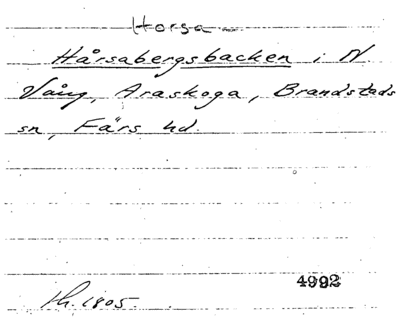 Horsa
Hårsabergsbacken i N.
Vång, Araskoga, Brandstads
sn, Färs hd.
4992
h. 1805.